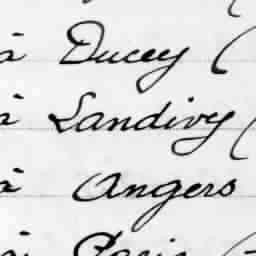 à Ducey (
à Landivy (
à Angers
à Paris (